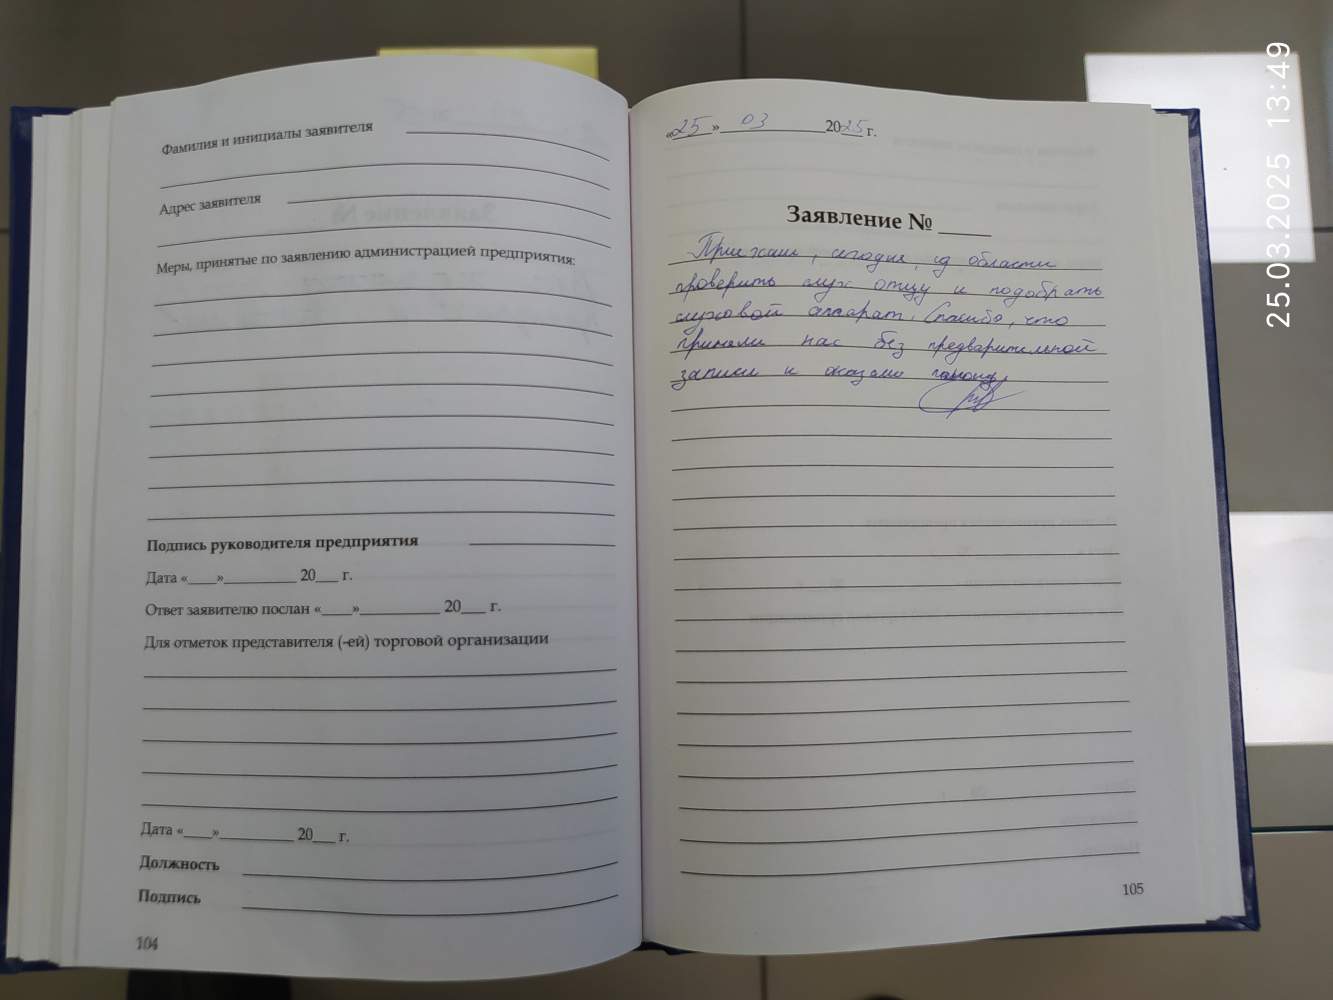 Фамилия и инициалы заявителя
Адрес заявителя
Меры, принятые по заявлению администрацией предприятия:
Подпись руководителя предприятия
Дата «____»__________ 20___ г.
Ответ заявителю послан «____»__________ 20___ г.
Для отметок представителя (-ей) торговой организации
Дата «____»__________ 20___ г.
Должность
Подпись
104
«25» 03 2025 г.
Заявление № ____
Приехали, сегодня, из области
проверить слух отцу и подобрать
слуховой аппарат. Спасибо, что
приняли нас без предварительной
записи и оказали помощь.
105
25.03.2025 13:49